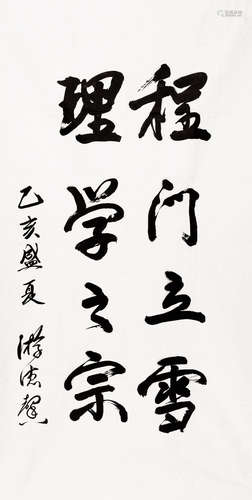 程门立雪
理学之宗
乙亥盛夏 游德馨